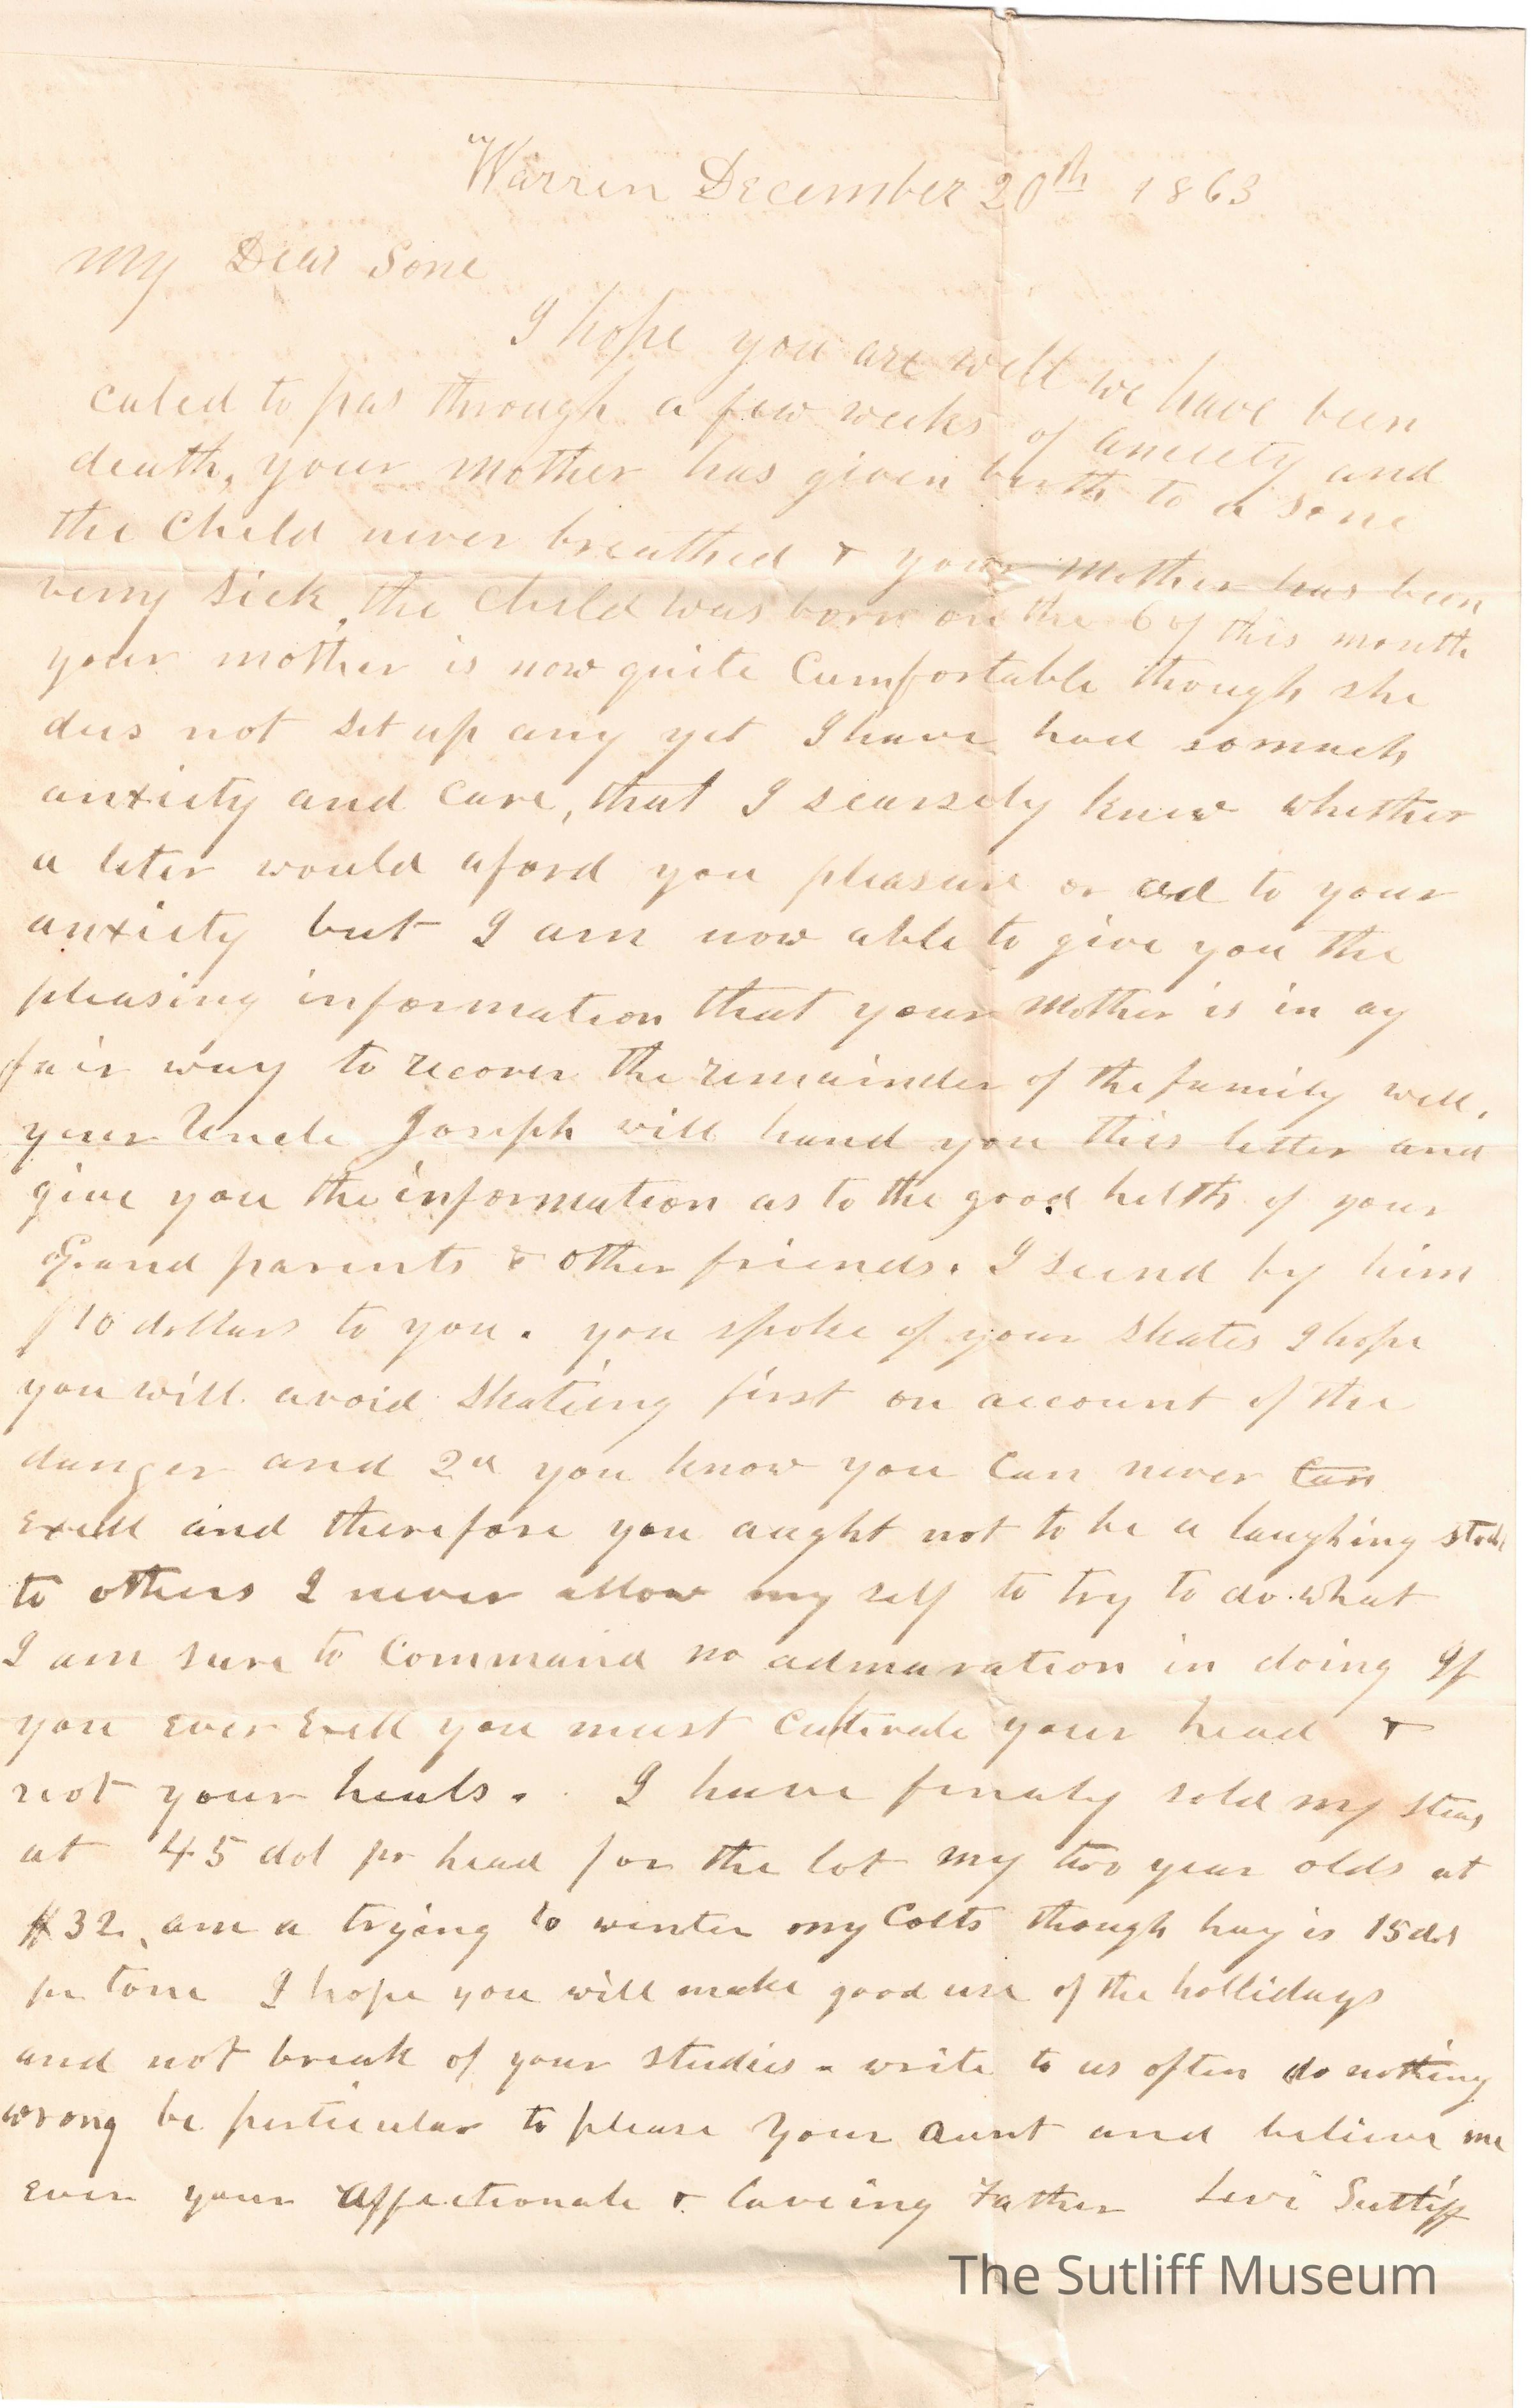 Warren December 20th 1863
My Dear Sone
I hope you are well we have been
caled to pas through a few weeks of anxiety and
death, your mother has given birth to a sone
the Child never breathed & your mother has been
verry sick, the child was born on the 6 of this month
your mother is now quite Cumfortable though she
dus not set up any yet I have had somuch
anxiety and care, that I scarsely knew whether
a leter would aford you pleasure or ad to your
anxiety but I am now able to give you the
pleasing information that your mother is in ay
fair way to recover the remainder of the family well,
your Uncle Joseph will hand you this letter and
give you the information as to the good helth of your
Grand parents & other friends. I seend by him
10 dollars to you. you spoke of your skates I hope
you will avoid skateing first on account of the
danger and 2d you know you can never can
exell and therefore you aught not to be a laughing stock
to others I never allow my self to try to do what
I am sure to Command no admaration in doing If
you ever Exell you must cultivate your head &
not your heals. I have finaly sold my stears
at 45 dol pr head for the lot my two year olds at
$32, am a trying to winter my Colts though hay is 15 dol
pr tone I hope you will make good use of the hollidays
and not break of your studies - write to us often do nothing
wrong be perticular to please your aunt and believe me
ever your affectionate & loveing Father Levi Sutliff
The Sutliff Museum